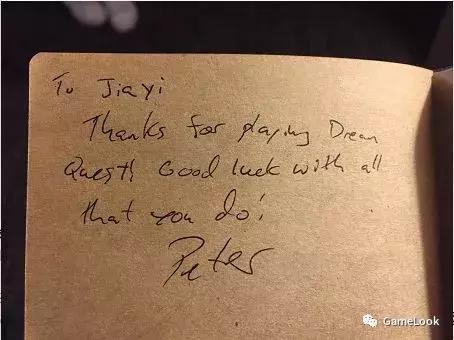 To Jiayi
Thanks for playing Dream
Quest! Good luck with all
that you do!
Peter
GameLook